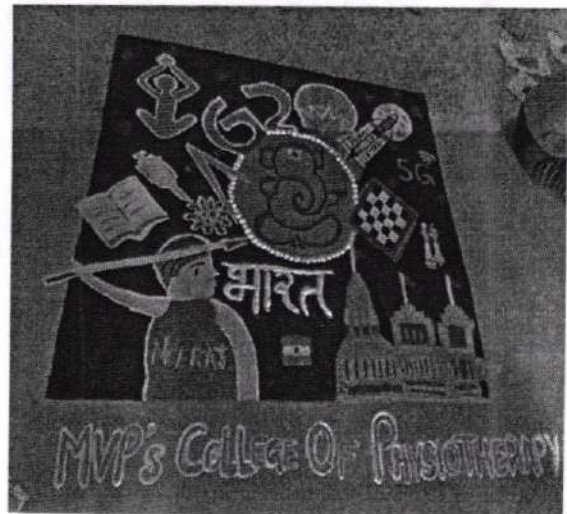 G20
5G
भारत
NEERAJ
MVP's COLLEGE OF PHYSIOTHERAPY